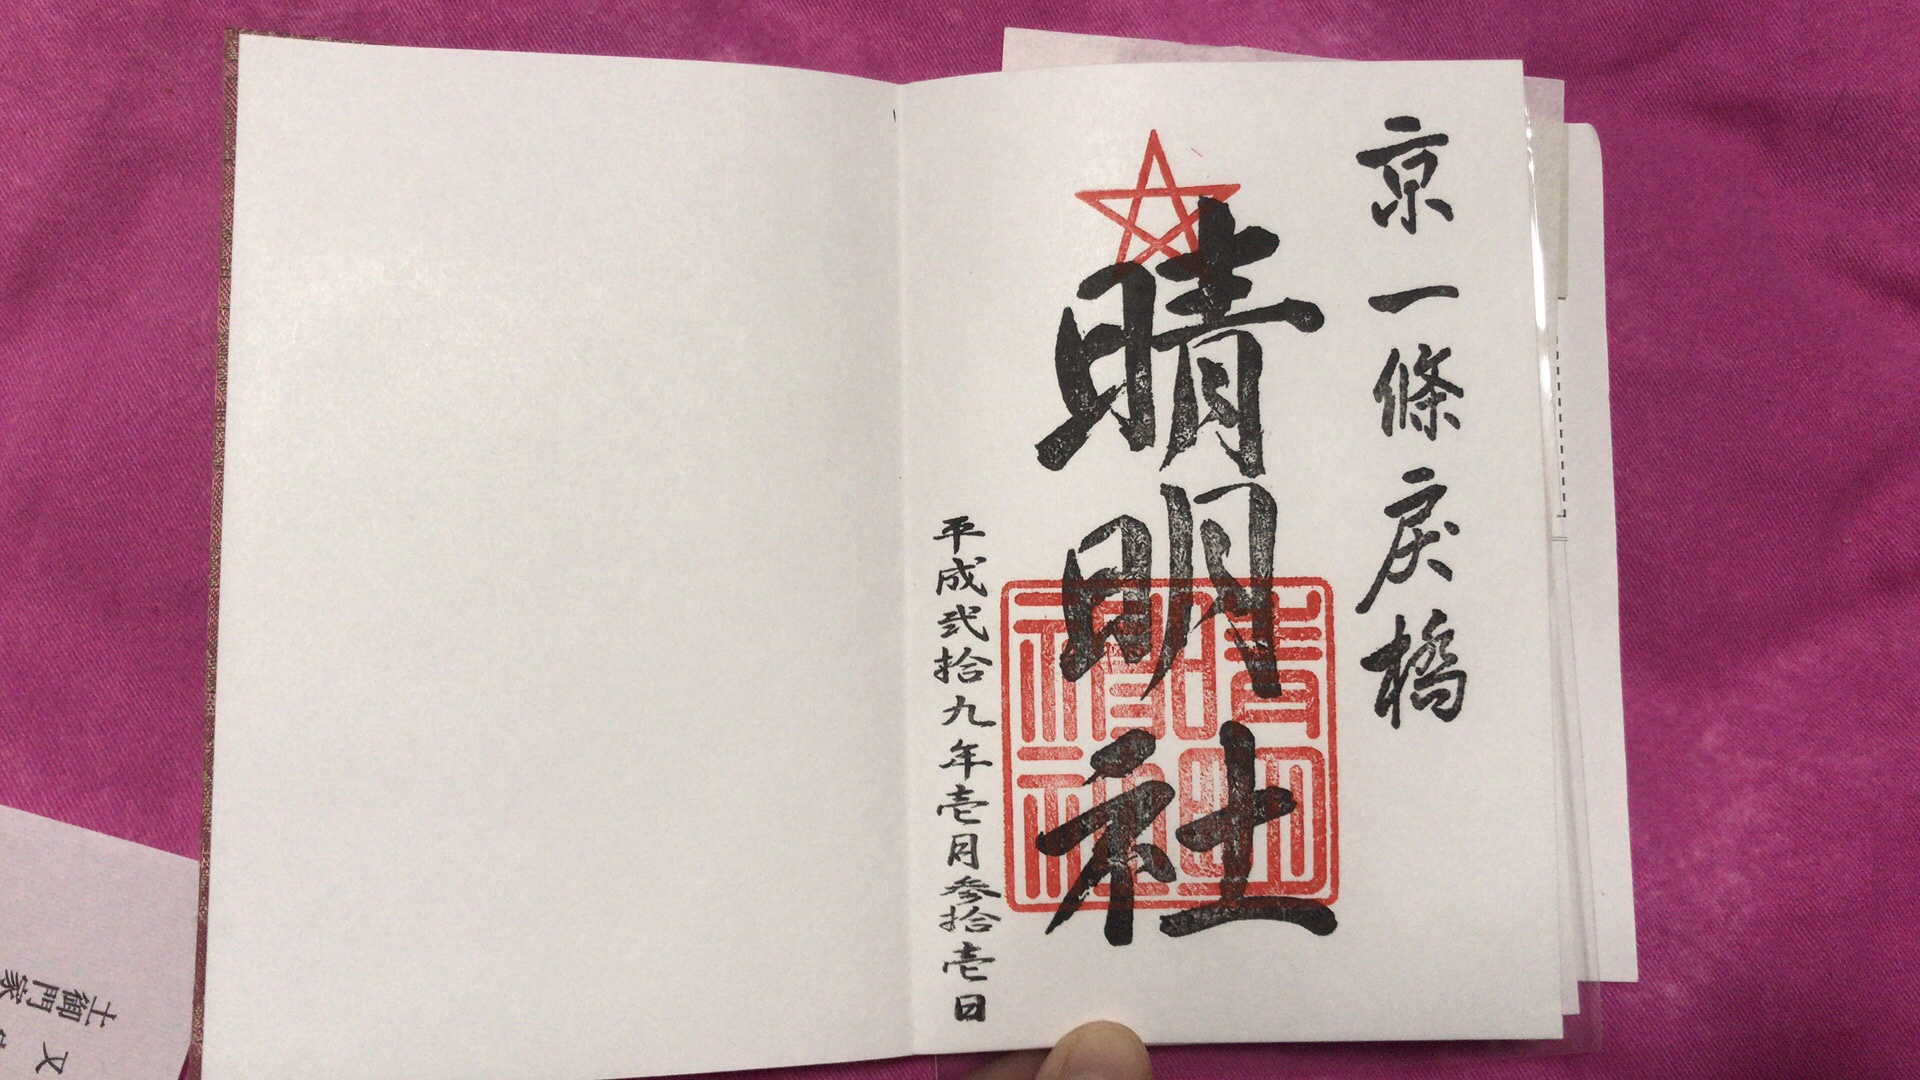 京一條戻橋
晴明社
晴明
神社
平成弐拾九年壱月参拾壱日
土御門家
又